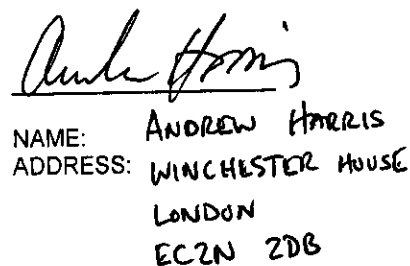 Andrew Harris
NAME: ANDREW HARRIS
ADDRESS: WINCHESTER HOUSE
LONDON
EC2N 2DB